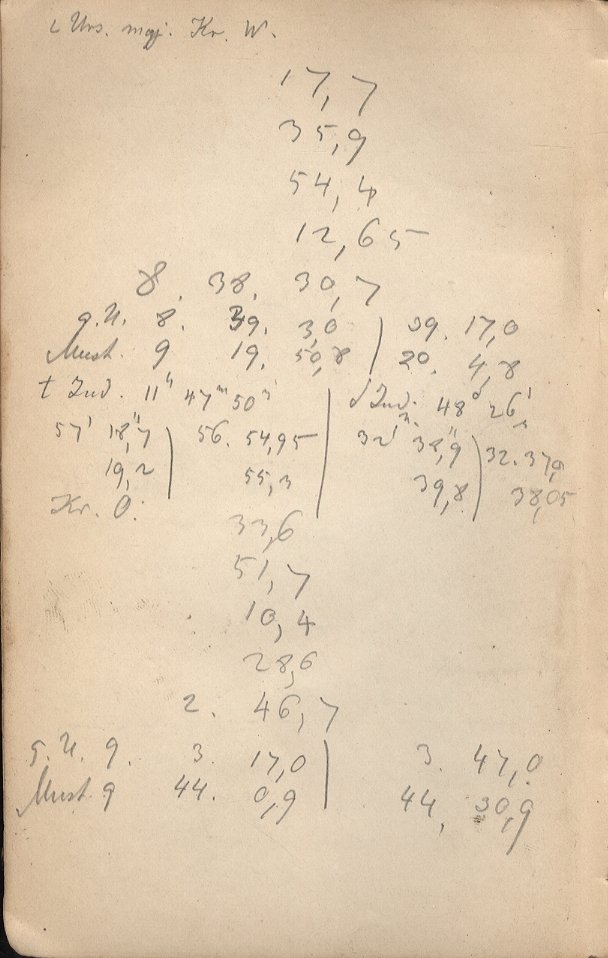 ι Urs. maj. Kr. W.
17,7
35,9
54,4
12,65
8. 38. 30,7
g.U. 8. 39. 30 | 39. 17,0
Must. 9 19. 50,8 | 20. 4,8
t Ind. 11h 47m 50s | δ Ind. 48° 26'
57' 18",7 | 56. 54,95 | 32' 38",9 | 32. 37,9
19,2 | 55,3 | 39,8 | 38,05
Kr. O.
33,6
51,7
10,4
28,6
2. 46,7
g.U. 9. 3. 17,0 | 3. 47,0
Must. 9 44. 0,9 | 44, 30,9